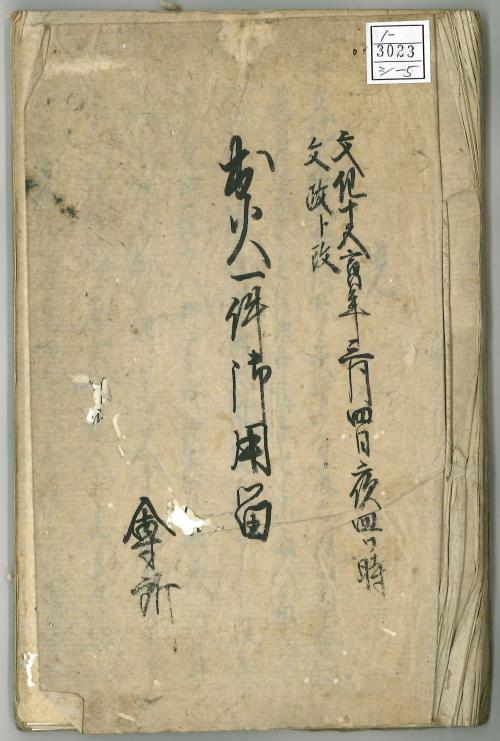 1-
3023
≥1-5
文化十五寅年三月四日夜四ツ時
文政ト改
出火一件御用留
會所